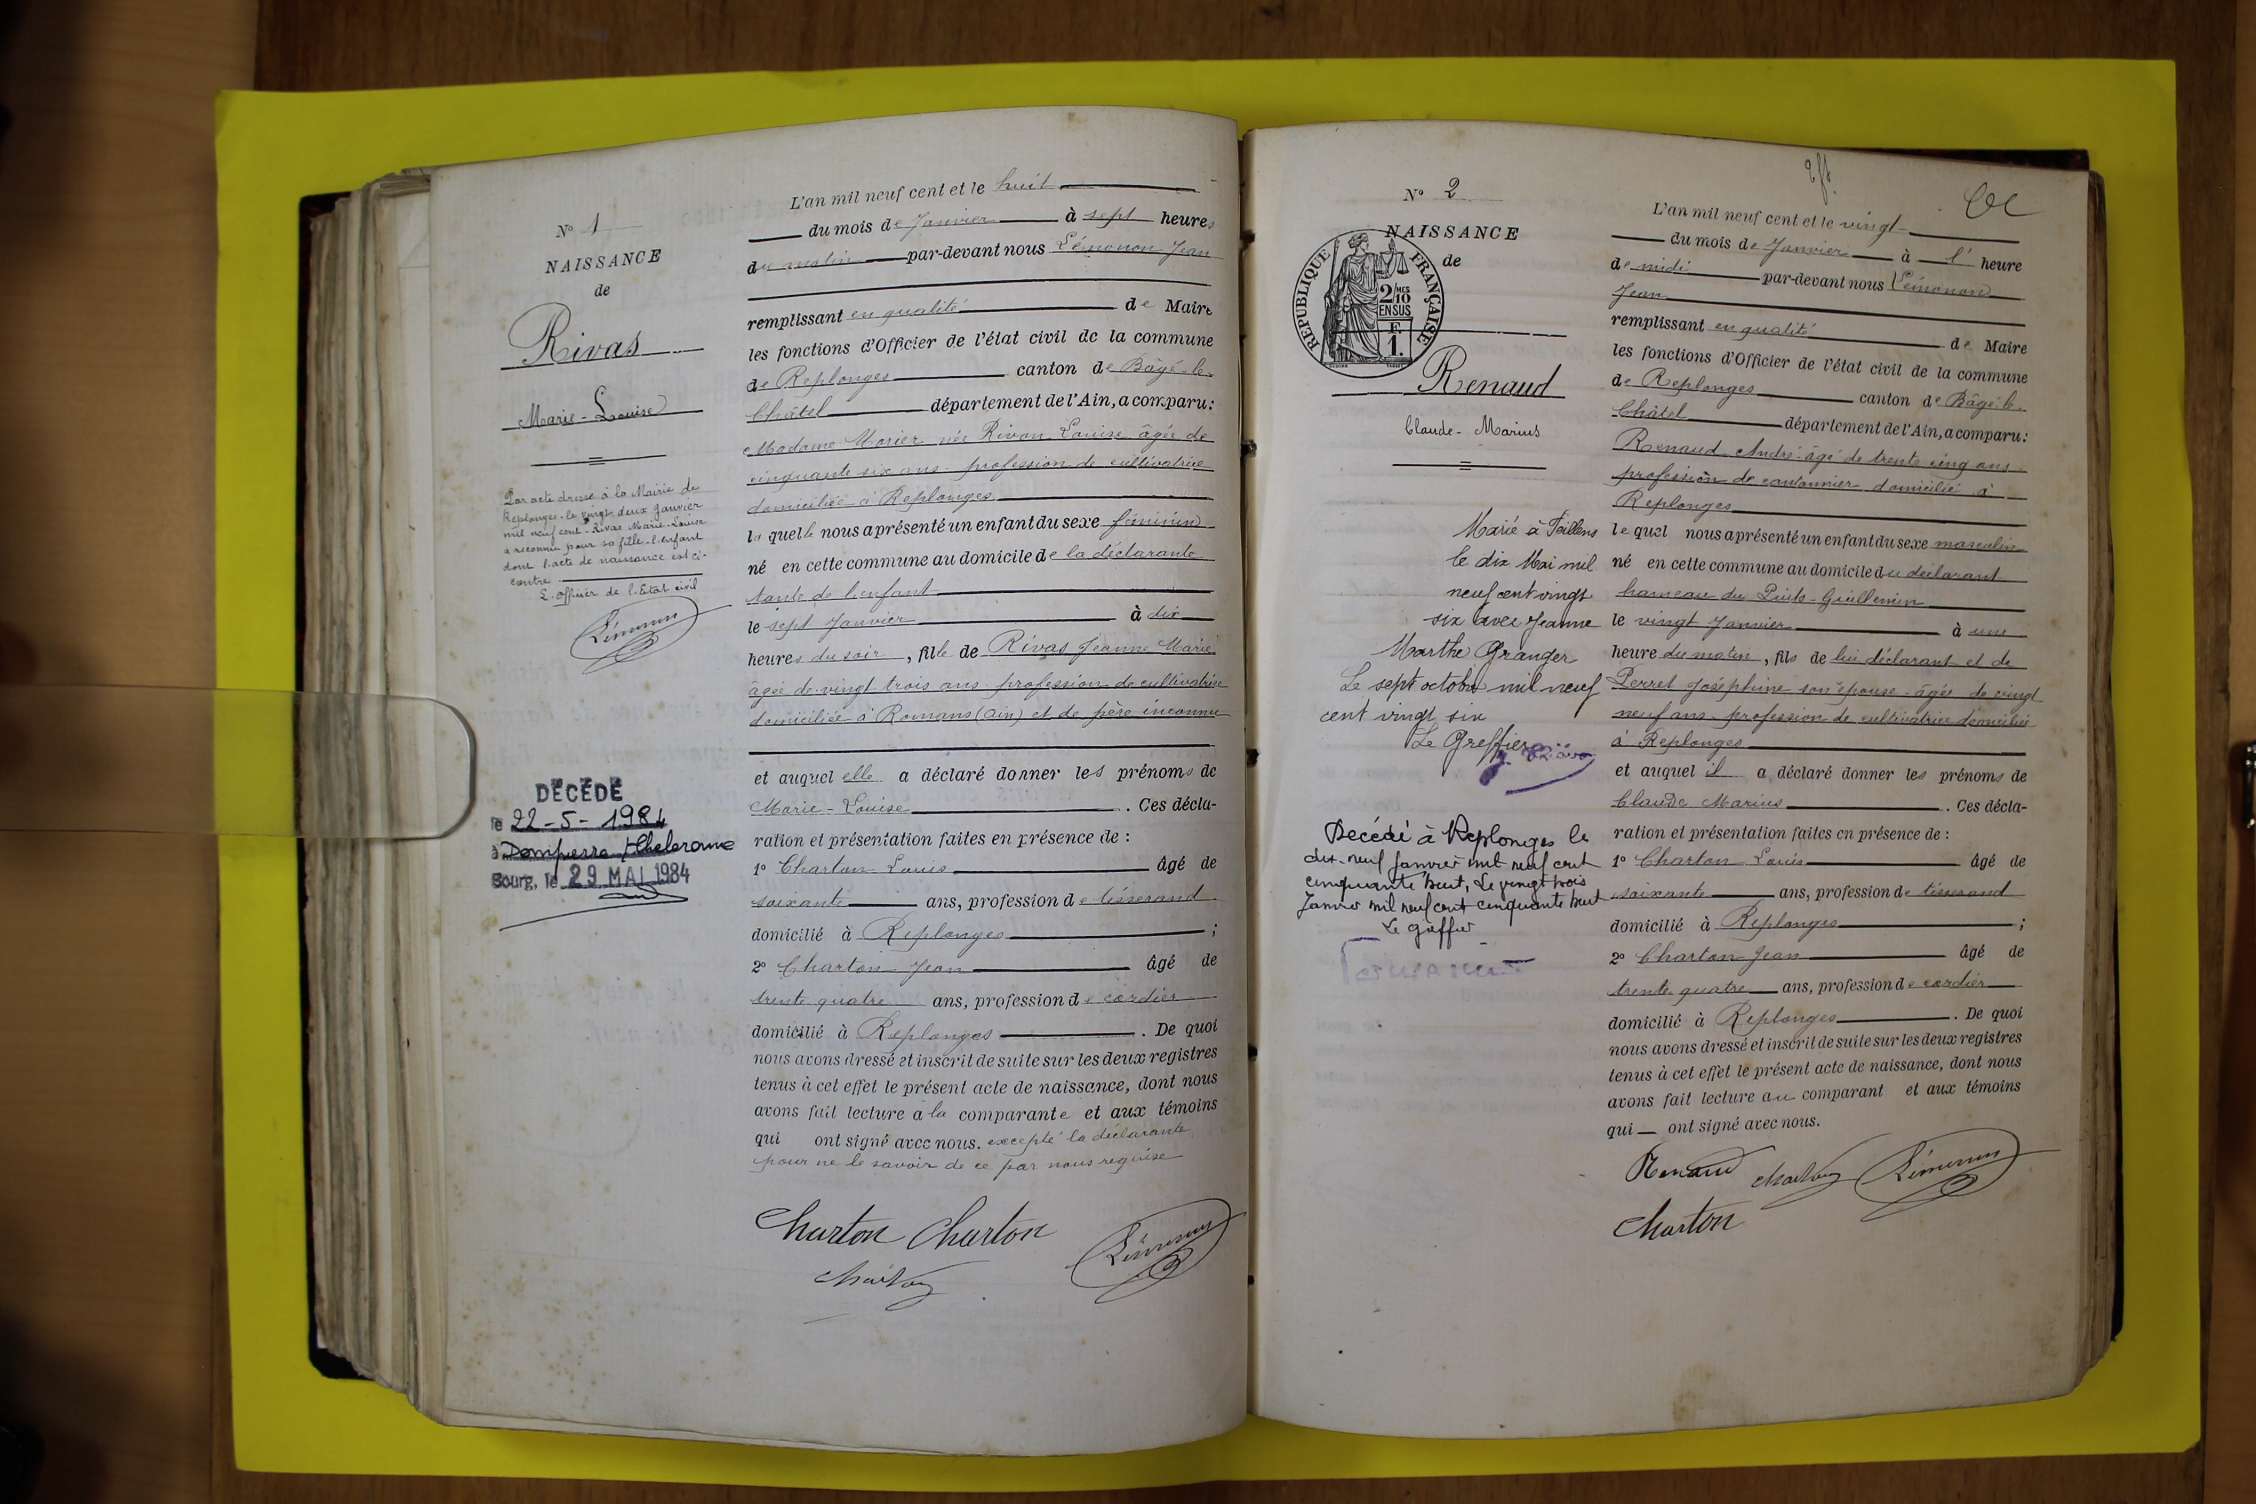 N° 1
NAISSANCE
de
Rivas
Marie-Louise
Par acte dressé à la Mairie de
Replonges le vingt deux Janvier
mil neuf cent Rivas Marie Louise
a reconnu pour sa fille l'enfant
dont l'acte de naissance est ci-
contre
L'officier de l'Etat civil
Lémonon
DÉCÉDÉ
le 22-5-1984
à Dompierre s/Chalaronne
Bourg, le 29 MAI 1984
L'an mil neuf cent et le huit
du mois de Janvier à sept heures
du matin par-devant nous Lémonon Jean
remplissant en qualité de Maire
les fonctions d'Officier de l'état civil de la commune
de Replonges canton de Bâgé-le-
Châtel département de l'Ain, a comparu:
Madame Morier née Rivon Louise âgée de
cinquante six ans profession de cultivatrice
domiciliée à Replonges
laquelle nous a présenté un enfant du sexe féminin
né en cette commune au domicile de la déclarante
tante de l'enfant
le sept Janvier à dix
heures du soir, fille de Rivas Jeanne Marie
âgée de vingt trois ans profession de cultivatrice
domiciliée à Romans (Ain) et de père inconnu
et auquel elle a déclaré donner les prénoms de
Marie-Louise. Ces décla-
ration et présentation faites en présence de :
1° Charton Louis âgé de
soixante ans, profession de tisserand
domicilié à Replonges ;
2° Charton Jean âgé de
trente quatre ans, profession de cordier
domicilié à Replonges. De quoi
nous avons dressé et inscrit de suite sur les deux registres
tenus à cet effet le présent acte de naissance, dont nous
avons fait lecture à la comparante et aux témoins
qui ont signé avec nous. excepté la déclarante
pour ne le savoir de ce par nous requise
Charton Charton Lémonon
Charton
N° 2
NAISSANCE
de
RÉPUBLIQUE FRANÇAISE
2/10 MES
EN SUS
F.
1.
Renaud
Claude-Marius
Marié à Feillens
le dix Mai mil
neuf cent vingt
six avec Jeanne
Marthe Granger
Le sept octobre mil neuf
cent vingt six
Le Greffier
Décédé à Replonges le
dix-neuf Janvier mil neuf cent
cinquante huit, Le vingt trois
Janvier mil neuf cent cinquante huit
Le greffier
L'an mil neuf cent et le vingt
du mois de Janvier à l' heure
de midi par-devant nous Lémonon
Jean
remplissant en qualité de Maire
les fonctions d'Officier de l'état civil de la commune
de Replonges canton de Bâgé-le-
Châtel département de l'Ain, a comparu:
Renaud André âgé de trente cinq ans
profession de cantonnier domicilié à
Replonges
lequel nous a présenté un enfant du sexe masculin
né en cette commune au domicile du déclarant
hameau du Puits-Guillemin
le vingt Janvier à une
heure du matin, fils de lui déclarant et de
Perret Joséphine son épouse âgée de vingt
neuf ans profession de cultivatrice domiciliée
à Replonges
et auquel il a déclaré donner les prénoms de
Claude Marius. Ces décla-
ration et présentation faites en présence de :
1° Charton Louis âgé de
soixante ans, profession de tisserand
domicilié à Replonges ;
2° Charton Jean âgé de
trente quatre ans, profession de cordier
domicilié à Replonges. De quoi
nous avons dressé et inscrit de suite sur les deux registres
tenus à cet effet le présent acte de naissance, dont nous
avons fait lecture au comparant et aux témoins
qui ont signé avec nous.
Renaud Charton Lémonon
Charton